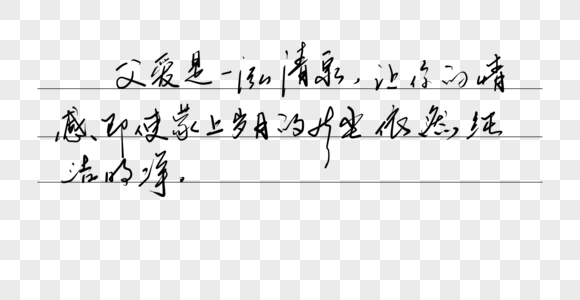 父爱是一泓清泉，让你的情
感、即使蒙上岁月的风尘依然纯
洁明净。